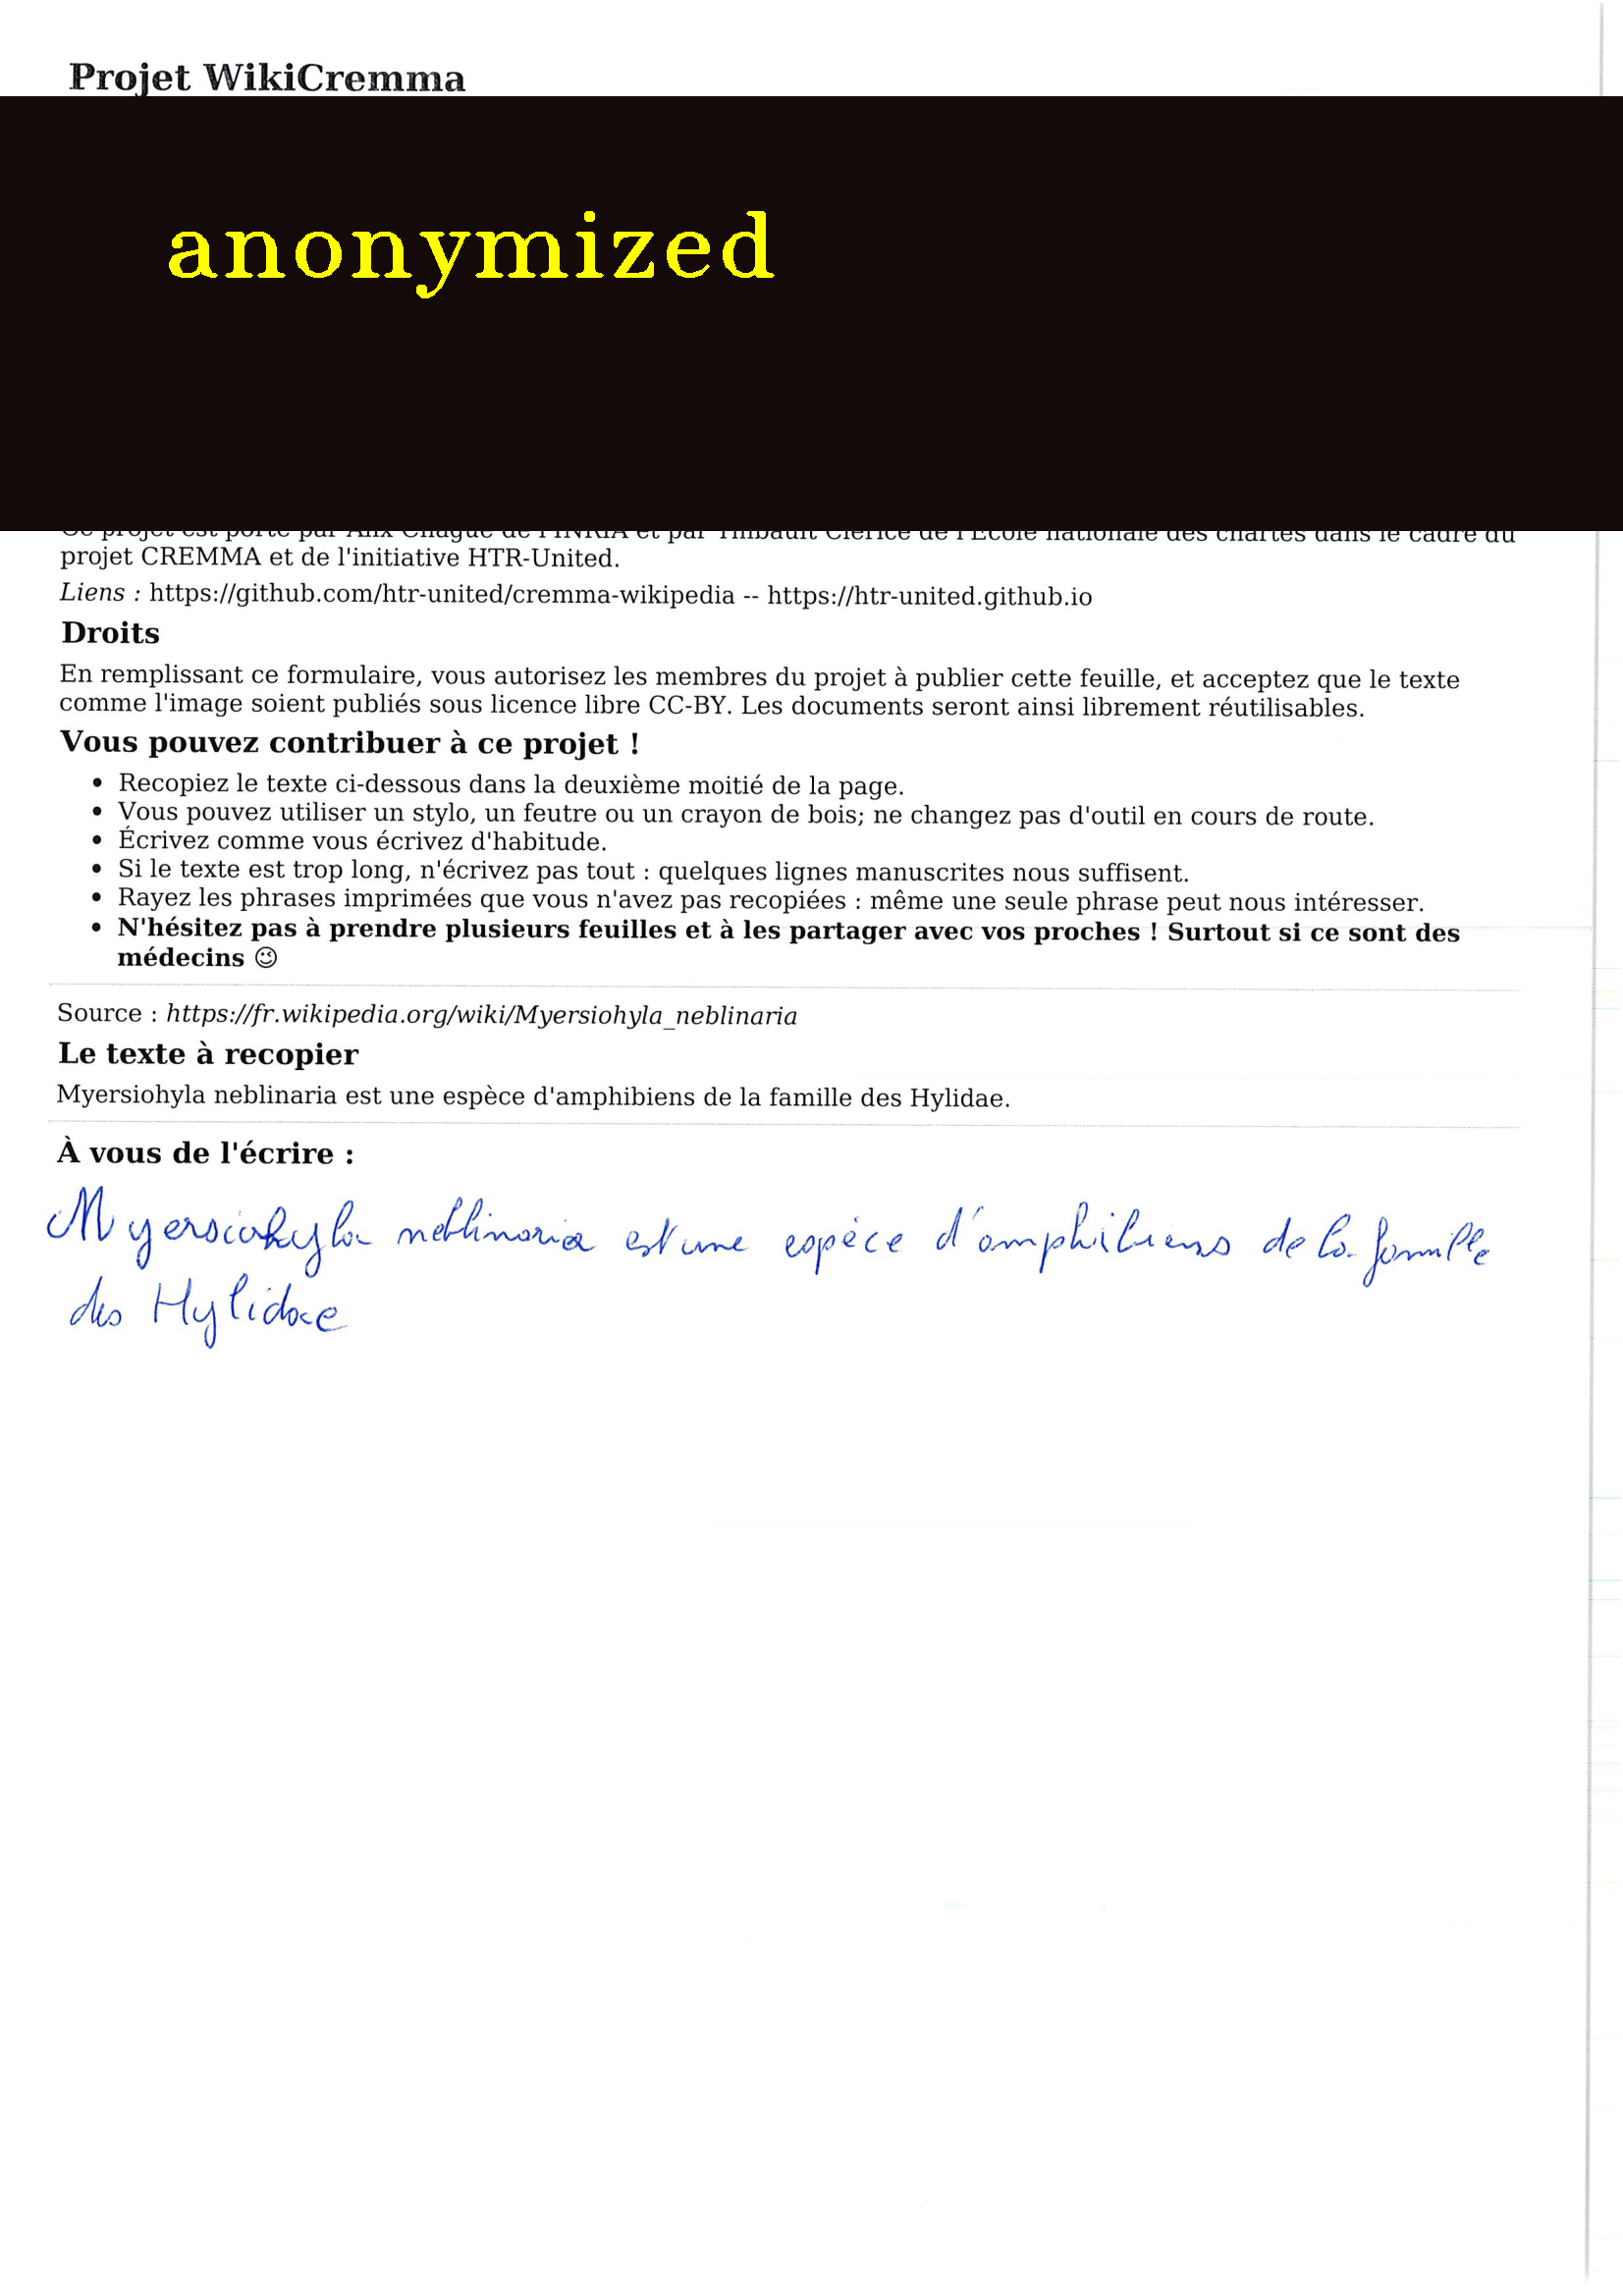 Projet WikiCremma
anonymized
Ce projet est porté par Alix Chagué de l'INRIA et par Thibault Clérice de l'École nationale des chartes dans le cadre du
projet CREMMA et de l'initiative HTR-United.
Liens : https://github.com/htr-united/cremma-wikipedia -- https://htr-united.github.io
Droits
En remplissant ce formulaire, vous autorisez les membres du projet à publier cette feuille, et acceptez que le texte
comme l'image soient publiés sous licence libre CC-BY. Les documents seront ainsi librement réutilisables.
Vous pouvez contribuer à ce projet !
• Recopiez le texte ci-dessous dans la deuxième moitié de la page.
• Vous pouvez utiliser un stylo, un feutre ou un crayon de bois; ne changez pas d'outil en cours de route.
• Écrivez comme vous écrivez d'habitude.
• Si le texte est trop long, n'écrivez pas tout : quelques lignes manuscrites nous suffisent.
• Rayez les phrases imprimées que vous n'avez pas recopiées : même une seule phrase peut nous intéresser.
• N'hésitez pas à prendre plusieurs feuilles et à les partager avec vos proches ! Surtout si ce sont des
médecins 😉
Source : https://fr.wikipedia.org/wiki/Myersiohyla_neblinaria
Le texte à recopier
Myersiohyla neblinaria est une espèce d'amphibiens de la famille des Hylidae.
À vous de l'écrire :
Myersiohyla neblinaria est une espèce d'amphibiens de la famille
des Hylidae